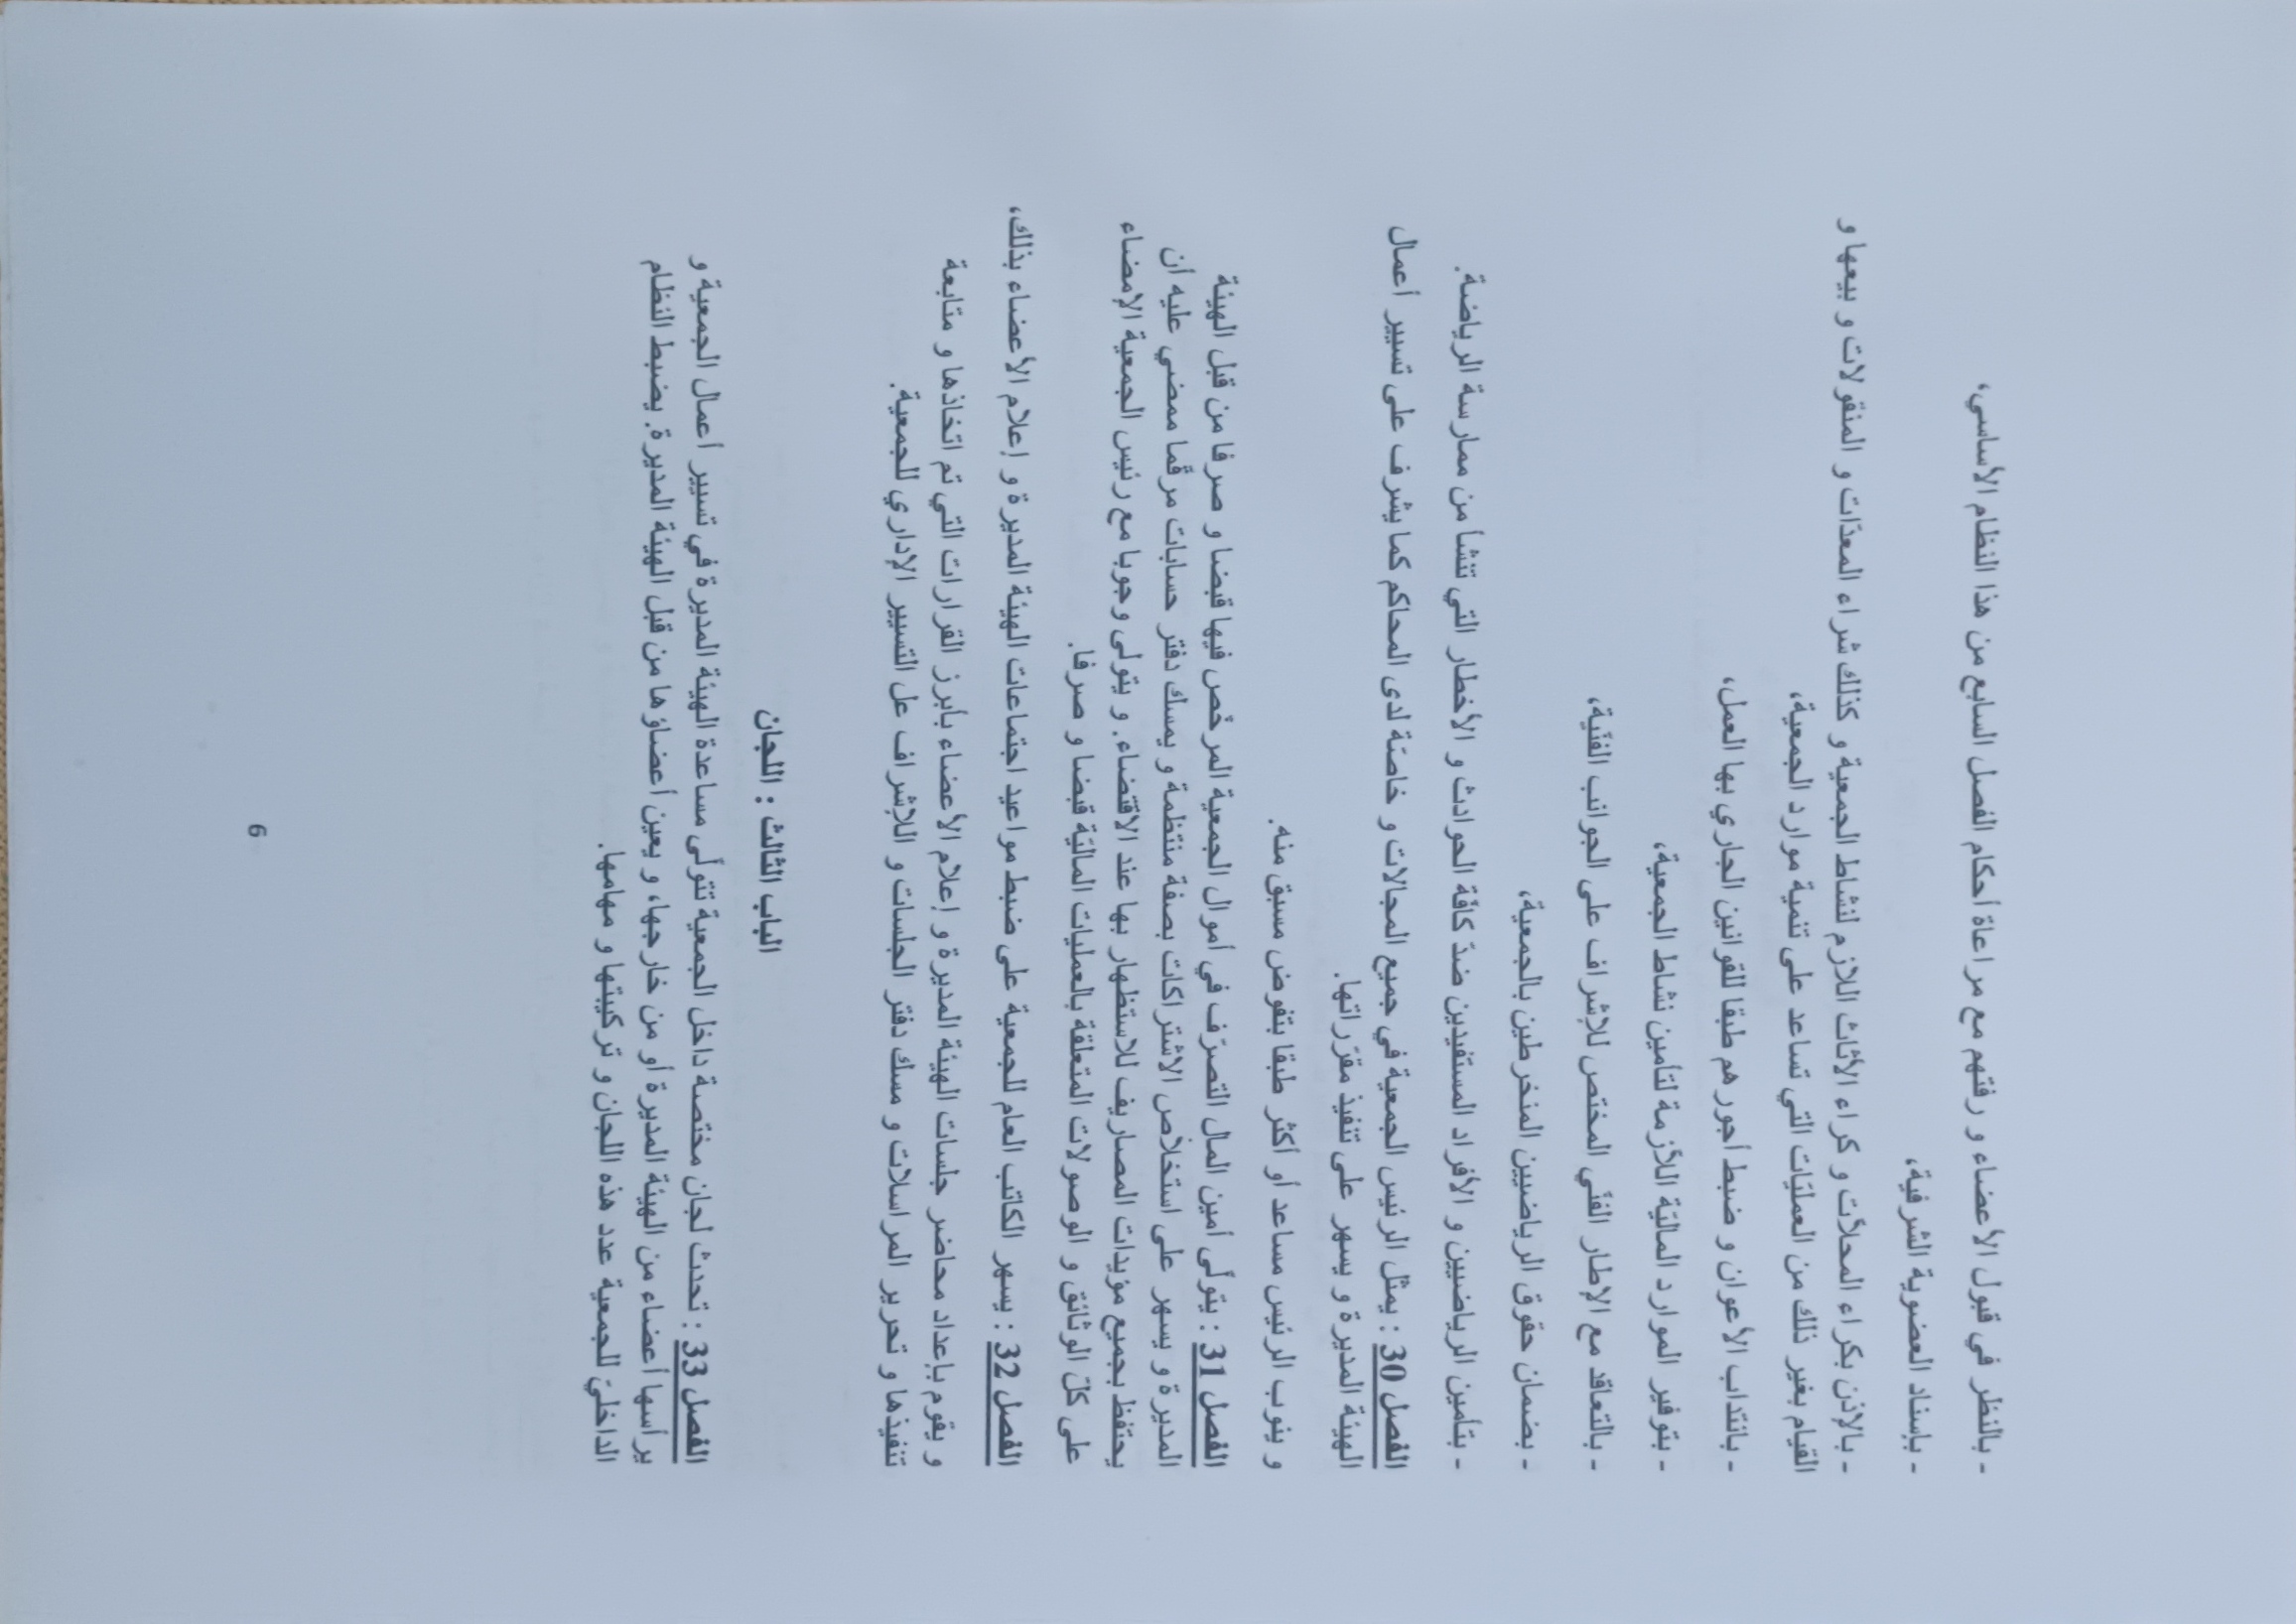 - بالنظر في قبول الأعضاء و رفتهم مع مراعاة أحكام الفصل السابع من هذا النظام الأساسي،
- بإسناد العضوية الشرفية،
- بالإذن بكراء المحلاّت و كراء الأثاث اللازم لنشاط الجمعية و كذلك شراء المعدّات و المنقولات و بيعها و
القيام بغير ذلك من العمليّات التي تساعد على تنمية موارد الجمعية،
- بانتداب الأعوان و ضبط أجورهم طبقا للقوانين الجاري بها العمل،
- بتوفير الموارد الماليّة اللاّزمة لتأمين نشاط الجمعية،
- بالتعاقد مع الإطار الفنّي المختص للإشراف على الجوانب الفنّية،
- بضمان حقوق الرياضيين المنخرطين بالجمعية،
- بتأمين الرياضيين و الأفراد المستفيدين ضدّ كافّة الحوادث و الأخطار التي تنشأ من ممارسة الرياضة.
الفصل 30 : يمثل الرئيس الجمعية في جميع المجالات و خاصّة لدى المحاكم كما يشرف على تسيير أعمال
الهيئة المديرة و يسهر على تنفيذ مقرّراتها.
و ينوب الرئيس مساعد أو أكثر طبقا بتفوض مسبق منه.
الفصل 31 : يتولّى أمين المال التصرّف في أموال الجمعية المرخّص فيها قبضا و صرفا من قبل الهيئة
المديرة و يسهر على استخلاص الاشتراكات بصفة منتظمة و يمسك دفتر حسابات مرقّما ممضي عليه أن
يحتفظ بجميع مؤيدات المصاريف للاستظهار بها عند الاقتضاء. و يتولى وجوبا مع رئيس الجمعية الإمضاء
على كلّ الوثائق و الوصولات المتعلقة بالعمليات الماليّة قبضا و صرفا.
الفصل 32 : يسهر الكاتب العام للجمعية على ضبط مواعيد اجتماعات الهيئة المديرة و إعلام الأعضاء بذلك،
و يقوم بإعداد محاضر جلسات الهيئة المديرة و إعلام الأعضاء بأبرز القرارات التي تم اتخاذها و متابعة
تنفيذها و تحرير المراسلات و مسك دفتر الجلسات و اللإشراف عل التسيير الإداري للجمعية.
الباب الثالث : اللجان
الفصل 33 : تحدث لجان مختصة داخل الجمعية تتولّى مساعدة الهيئة المديرة في تسيير أعمال الجمعية و
يرأسها أعضاء من الهيئة المديرة أو من خارجها، و يعين أعضاؤها من قبل الهيئة المديرة. يضبط النظام
الداخليّ للجمعية عدد هذه اللجان و تركيبتها و مهامها.
6